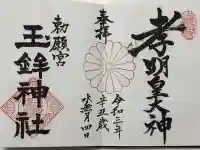 孝明皇大神
奉拝
令和三年
辛丑歳
水無月四日
勅願宮
玉鉾神社